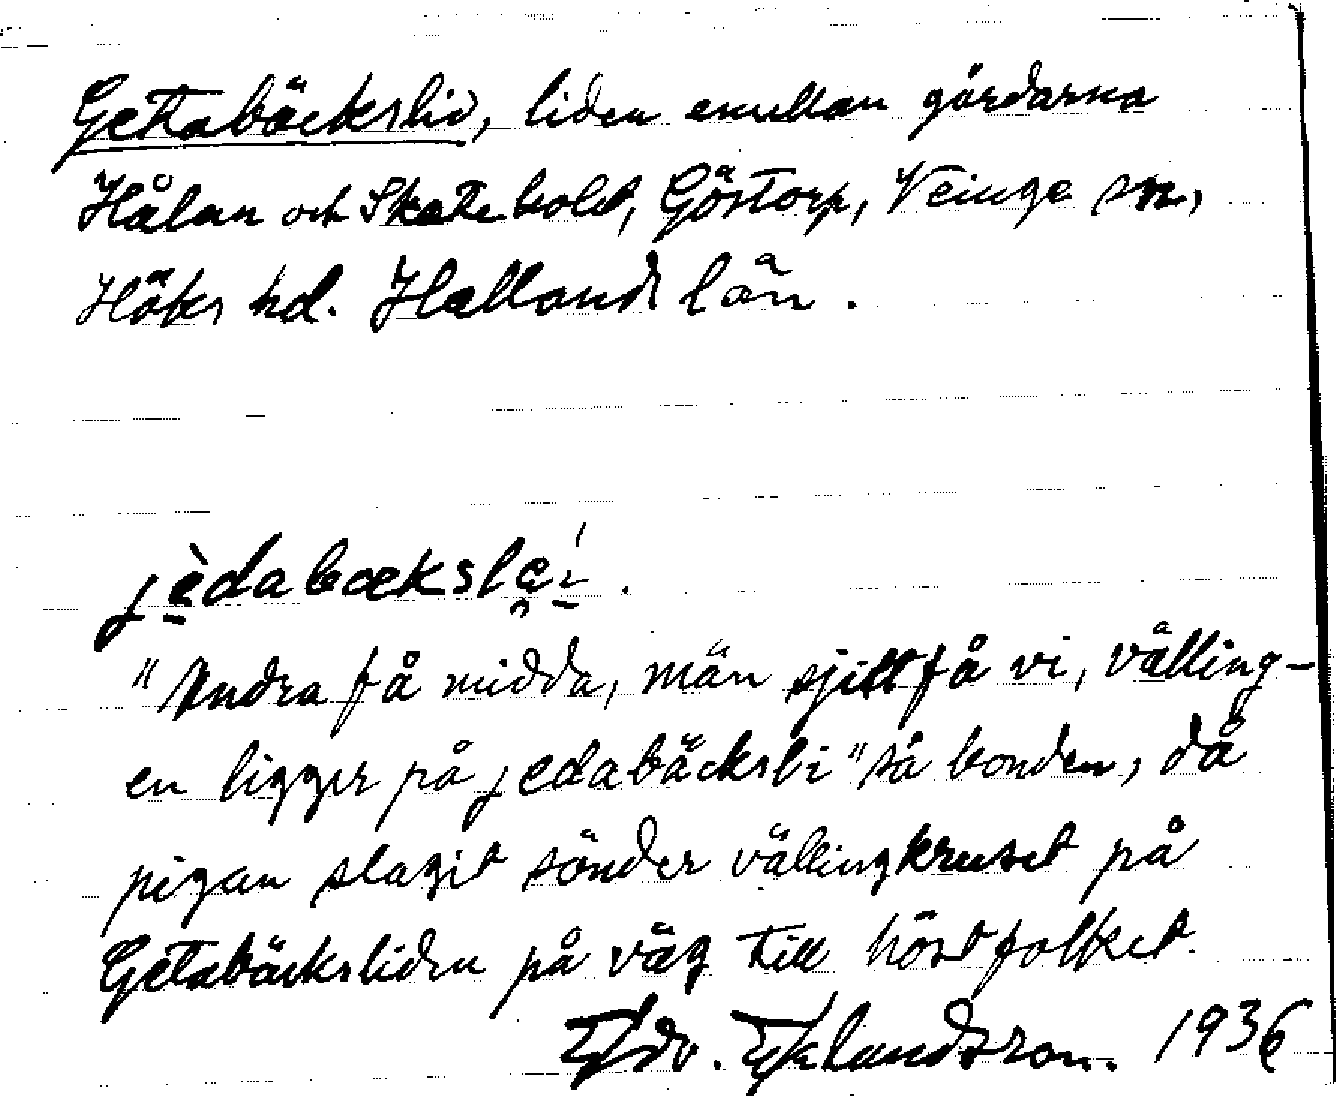 Getabäckslid, liden emellan gårdarna
Hålan och Skatebolet, Göstorp, Veinge sn,
Höks hd. Hallands län.
jèdabækslei.
"Andra få midda, män sjillt få vi, välling-
en ligger på jedabäcksli" så bonden, då
pigan slagit sönder vällingkruset på
Getabäcksliden på väg till höstfolket.
Edv. Eklandsson. 1936